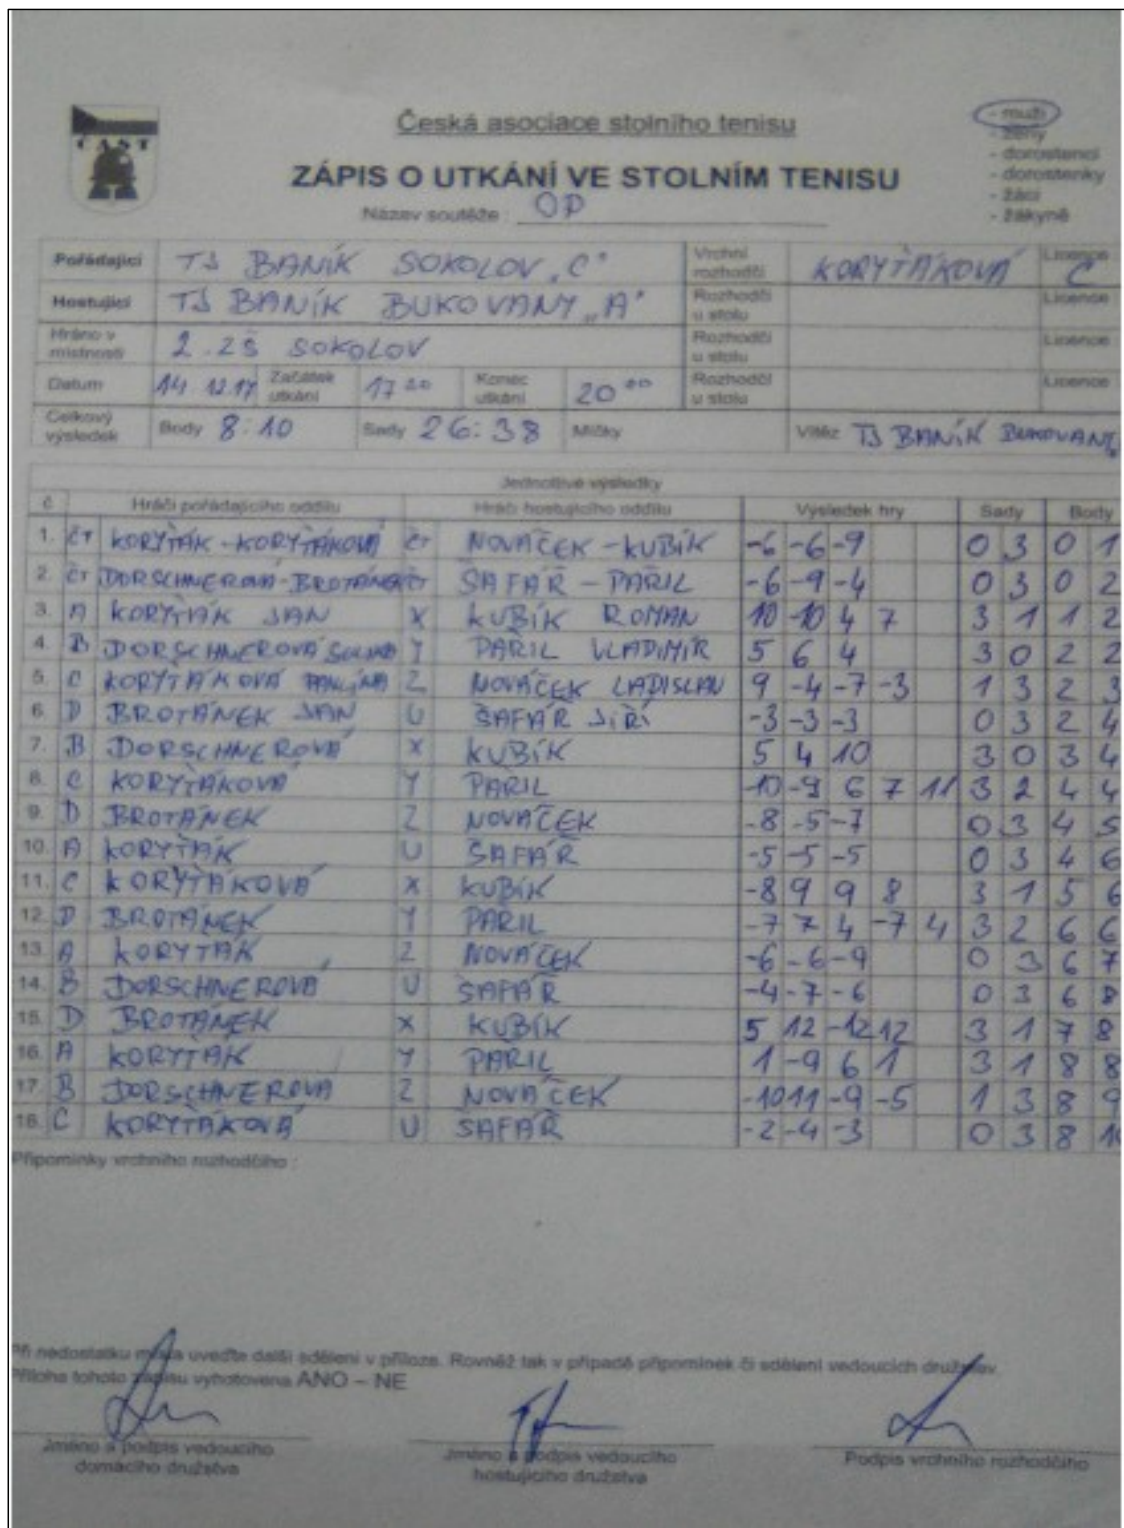 ČAST
Česká asociace stolního tenisu
ZÁPIS O UTKÁNÍ VE STOLNÍM TENISU
Název soutěže : OP
- muži
- ženy
- dorostenci
- dorostenky
- žáci
- žákyně
Pořádající TJ BANÍK SOKOLOV „C" Vrchní rozhodčí KORYŤÁKOVÁ Licence C
Hostující TJ BANÍK BUKOVANY „A" Rozhodčí u stolu Licence
Hráno v místnosti 2. ZŠ SOKOLOV Rozhodčí u stolu Licence
Datum 14.12.17 Začátek utkání 17 20 Konec utkání 20 00 Rozhodčí u stolu Licence
Celkový výsledek Body 8:10 Sady 26:38 Míčky Vítěz TJ BANÍK BUKOVANY
Jednotlivé výsledky
č Hráči pořádajícího oddílu Hráči hostujícího oddílu Výsledek hry Sady Body
1. ČT KORYŤÁK - KORYŤÁKOVÁ ČT NOVÁČEK - KUBÍK -6 -6 -9 0 3 0 1
2. ČT DORSCHNEROVÁ - BROTÁNEK ČT ŠAFÁŘ - PAŘIL -6 -9 -4 0 3 0 2
3. A KORYŤÁK JAN X KUBÍK ROMAN 10 -10 4 7 3 1 1 2
4. B DORSCHNEROVÁ Y PAŘIL VLADIMÍR 5 6 4 3 0 2 2
5. C KORYŤÁKOVÁ PAVLÍNA Z NOVÁČEK LADISLAV 9 -4 -7 -3 1 3 2 3
6. D BROTÁNEK JAN U ŠAFÁŘ JIŘÍ -3 -3 -3 0 3 2 4
7. B DORSCHNEROVÁ X KUBÍK 5 4 10 3 0 3 4
8. C KORYŤÁKOVÁ Y PAŘIL -10 -9 6 7 11 3 2 4 4
9. D BROTÁNEK Z NOVÁČEK -8 -5 -7 0 3 4 5
10. A KORYŤÁK U ŠAFÁŘ -5 -5 -5 0 3 4 6
11. C KORYŤÁKOVÁ X KUBÍK -8 9 9 8 3 1 5 6
12. D BROTÁNEK Y PAŘIL -7 7 4 -7 4 3 2 6 6
13. A KORYŤÁK Z NOVÁČEK -6 -6 -9 0 3 6 7
14. B DORSCHNEROVÁ U ŠAFÁŘ -4 -7 -6 0 3 6 8
15. D BROTÁNEK X KUBÍK 5 12 -12 12 3 1 7 8
16. A KORYŤÁK Y PAŘIL 1 -9 6 1 3 1 8 8
17. B DORSCHNEROVÁ Z NOVÁČEK -10 11 -9 -5 1 3 8 9
18. C KORYŤÁKOVÁ U ŠAFÁŘ -2 -4 -3 0 3 8 10
Připomínky vrchního rozhodčího :
Při nedostatku místa uveďte další sdělení v příloze. Rovněž tak v případě připomínek či sdělení vedoucích družstev.
Příloha tohoto zápisu vyhotovena ANO – NE
Jméno a podpis vedoucího domácího družstva
Jméno a podpis vedoucího hostujícího družstva
Podpis vrchního rozhodčího